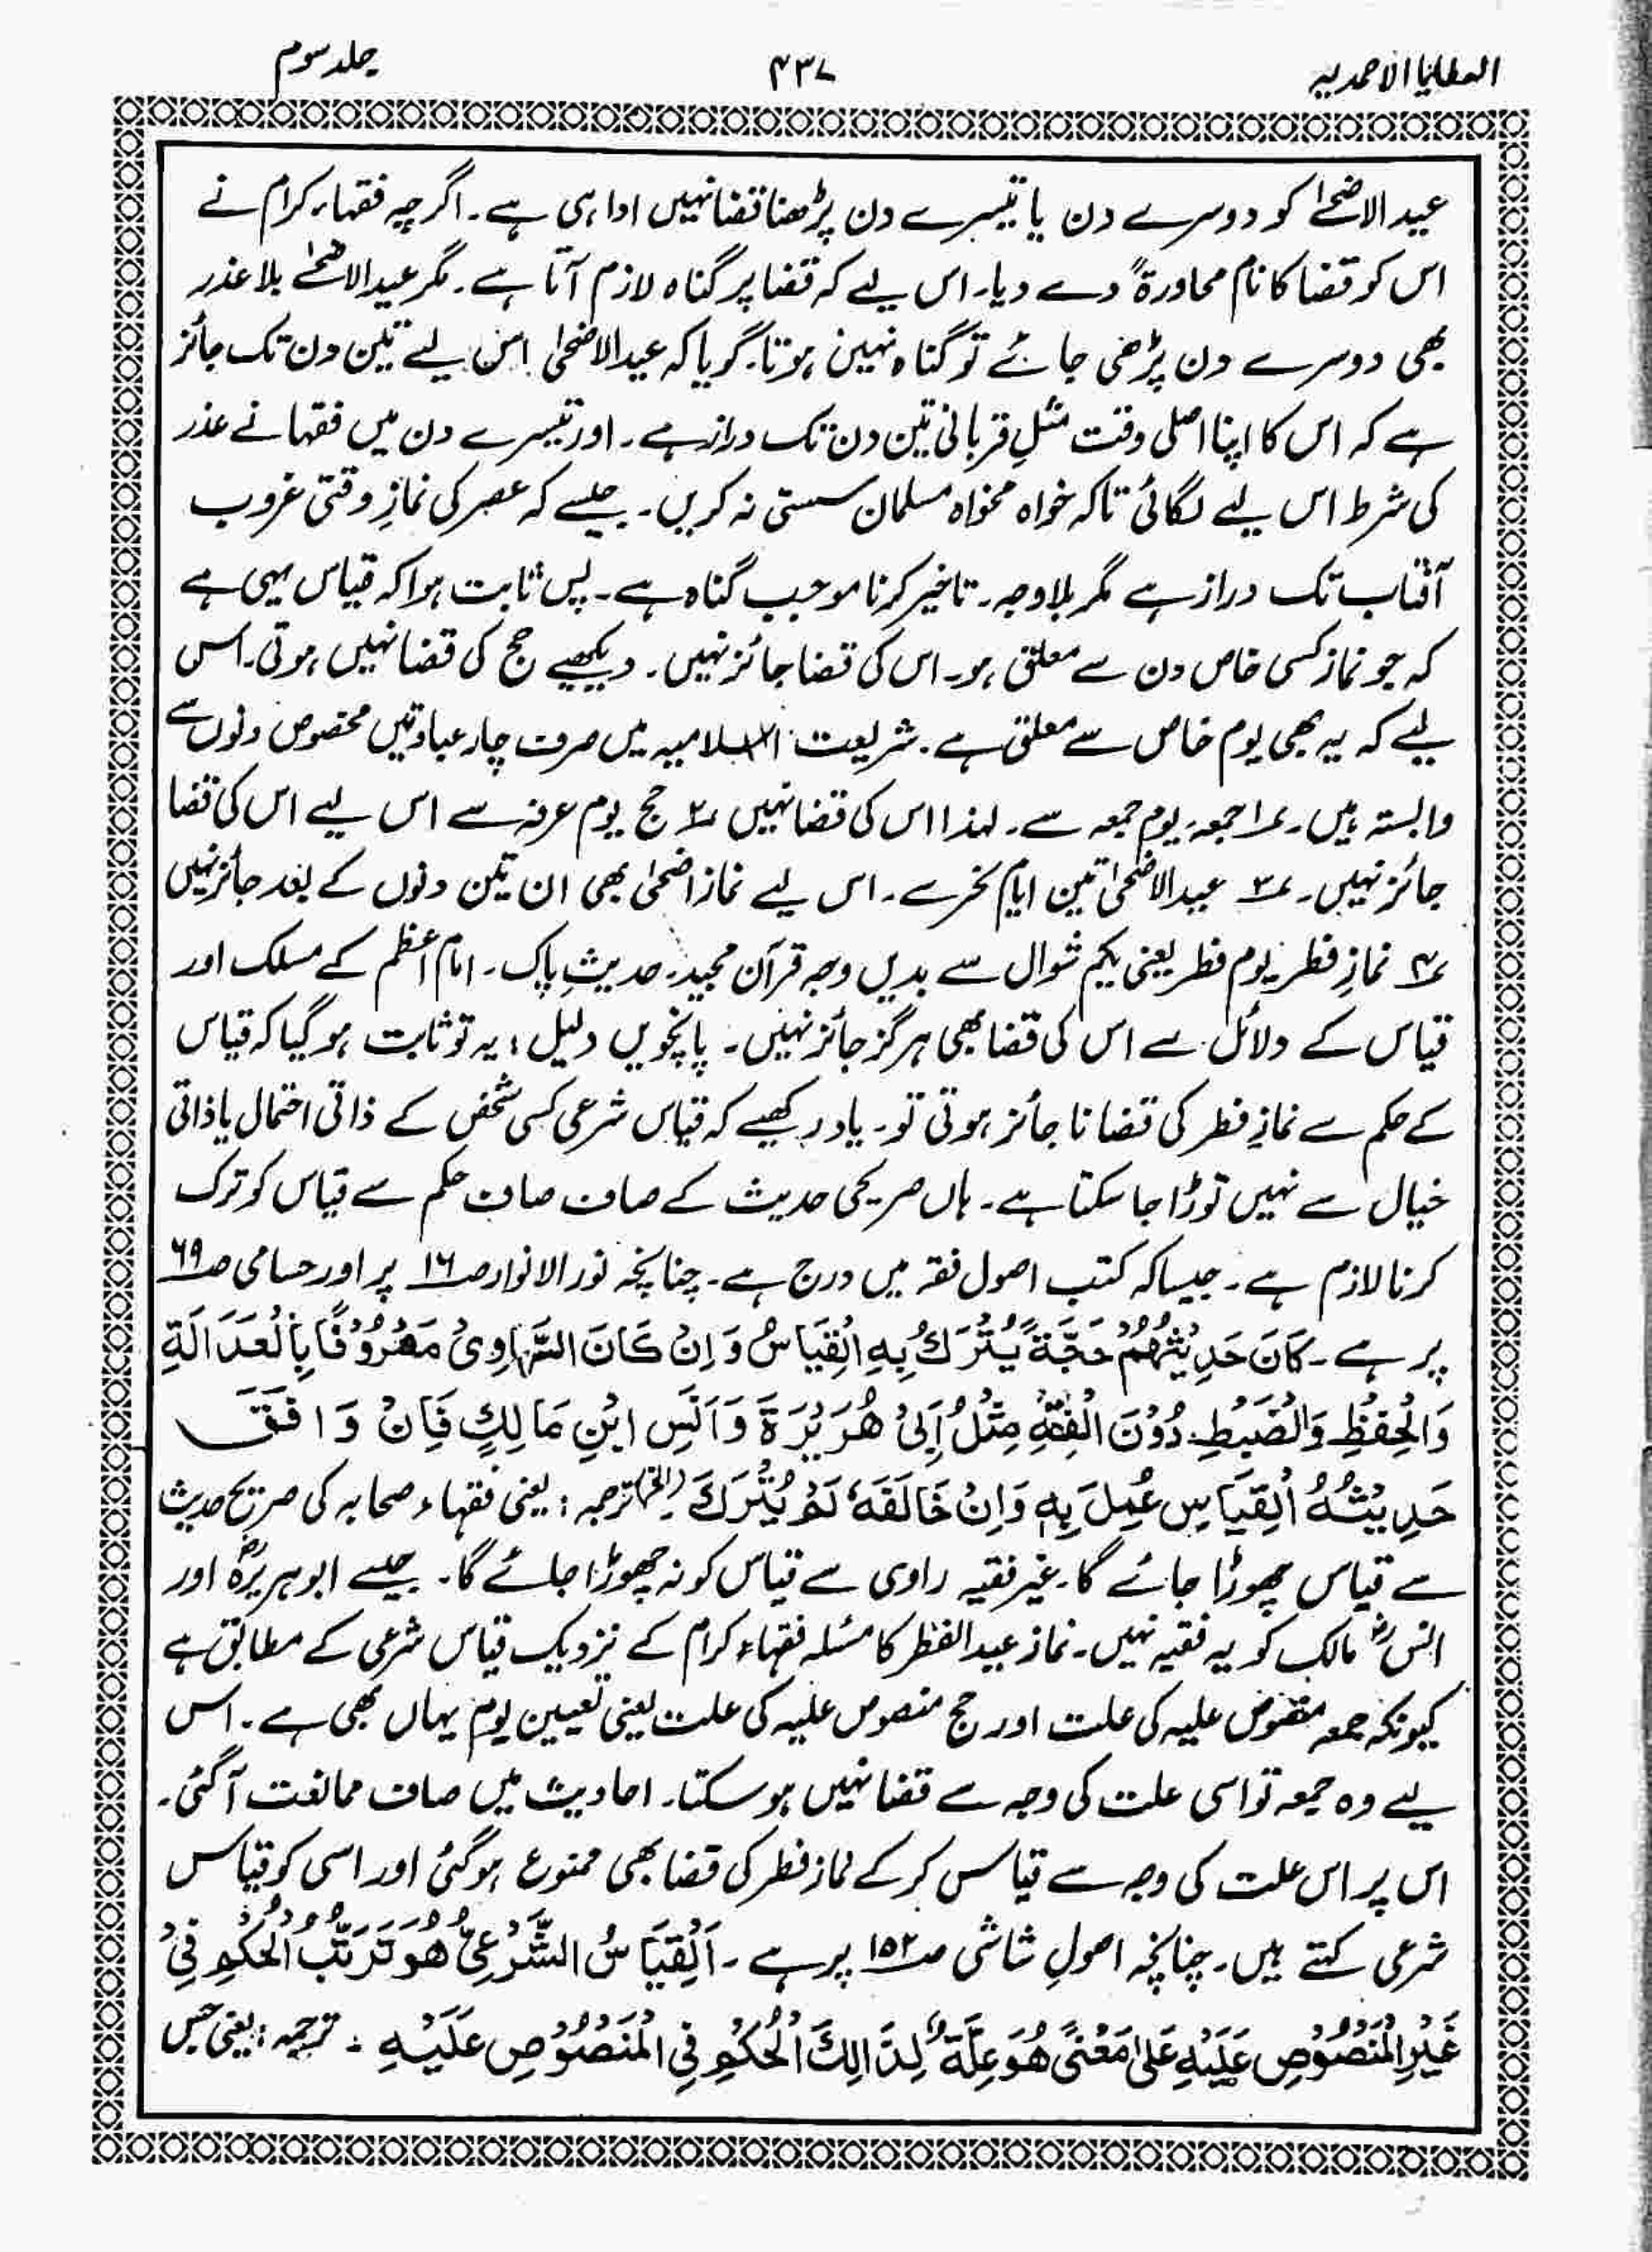 العطایا الاحمدیہ
۴۳۷
جلد سوم
عید الاضحیٰ کو دوسرے دن یا تیسرے دن پڑھنا قضا نہیں ادا ہی ہے۔ اگرچہ فقہاء کرام نے
اس کو قضا کا نام محاورۃً دے دیا۔ اس لیے کہ قضا پر گناہ لازم آتا ہے۔ مگر عید الاضحٰے بلا عذر
بھی دوسرے دن پڑھی جائے تو گناہ نہیں ہوتا۔ گویا کہ عید الاضحیٰ اس لیے تین دن تک جائز
ہے کہ اس کا اپنا اصلی وقت مثلِ قربانی تین دن تک دراز ہے۔ اور تیسرے دن میں فقہا نے عذر
کی شرط اس لیے لگائی تاکہ خواہ مخواہ مسلمان سستی نہ کریں۔ جیسے کہ عصر کی نمازِ وقتی غروب
آفتاب تک دراز ہے مگر بلاوجہ۔ تاخیر کرنا موجب گناہ ہے۔ پس ثابت ہوا کہ قیاس یہی ہے
کہ جو نماز کسی خاص دن سے معلق ہو۔ اس کی قضا جائز نہیں۔ دیکھیے حج کی قضا نہیں ہوتی۔ اس
لیے کہ یہ بھی یوم خاص سے معلق ہے۔ شریعت اسلامیہ میں صرف چار عبادتیں مخصوص دنوں سے
وابستہ ہیں۔ ؁۱ جمعہ، یوم جمعہ سے۔ لہذا اس کی قضا نہیں ؁۲ حج یوم عرفہ سے اس لیے اس کی قضا
جائز نہیں۔ ؁۳ عید الاضحیٰ تین ایام نحر سے۔ اس لیے نماز اضحیٰ بھی ان تین دنوں کے بعد جائز نہیں
؁۴ نمازِ فطر یوم فطر یعنی یکم شوال سے بدیں وجہ قرآن مجید۔ حدیثِ پاک۔ امام اعظم کے مسلک اور
قیاس کے دلائل سے اس کی قضا بھی ہرگز جائز نہیں۔ پانچویں دلیل: یہ تو ثابت ہو گیا کہ قیاس
کے حکم سے نمازِ فطر کی قضا نا جائز ہوتی تو۔ یاد رکھیے کہ قیاس شرعی کسی شخص کے ذاتی احتمال یا ذاتی
خیال سے نہیں توڑا جا سکتا ہے۔ ہاں صریحی حدیث کے صاف صاف حکم سے قیاس کو ترک
کرنا لازم ہے۔ جیسا کہ کتب اصول فقہ میں درج ہے۔ چنانچہ نور الانوار صـ۱۶ پر اور حسامی صـ۶۹
پر ہے۔ كَانَ حَدِيْثُهُمْ حُجَّةً يُتْرَكُ بِهِ الْقِيَاسُ وَ اِنْ كَانَ الرَّاوِىْ مَعْرُوْفًا بِالْعَدَالَةِ
وَالْحِفْظِ وَالضَّبْطِ دُوْنَ الْفِقْهِ مِثْلُ اَبِىْ هُرَيْرَةَ وَ اَنَسِ ابْنِ مَالِكٍ فَاِنْ وَافَقَ
حَدِيْثُهُ الْقِيَاسِ عُمِلَ بِهٖ وَاِنْ خَالَفَهٗ لَمْ يُتْرَكَ (الخ) ترجمہ: یعنی فقہاء صحابہ کی صریح حدیث
سے قیاس چھوڑا جائے گا۔ غیر فقیہ راوی سے قیاس کو نہ چھوڑا جائے گا۔ جیسے ابوہریرہؓ اور
انسؓ مالک کو یہ فقیہ نہیں۔ نماز عید الفطر کا مسئلہ فقہاء کرام کے نزدیک قیاس شرعی کے مطابق ہے
کیونکہ جمعہ منصوص علیہ کی علت اور حج منصوص علیہ کی علت یعنی تعیین یوم یہاں بھی ہے۔ اس
لیے وہ جمعہ تو اسی علت کی وجہ سے قضا نہیں ہو سکتا۔ احادیث میں صاف ممانعت آگئی۔
اس پر اس علت کی وجہ سے قیاس کر کے نماز فطر کی قضا بھی ممنوع ہو گئی اور اسی کو قیاس
شرعی کہتے ہیں۔ چنانچہ اصولِ شاشی صـ۱۵۲ پر ہے۔ اَلْقِيَاسُ الشَّرْعِىُّ هُوَ تَرَتُّبُ الْحُكْمِ فِىْ
غَيْرِ الْمَنْصُوْصِ عَلَيْهِ عَلىٰ مَعْنىً هُوَ عِلَّةٌ لِذَالِكَ الْحُكْمِ فِى الْمَنْصُوْصِ عَلَيْهِ ۔ ترجمہ: یعنی جس